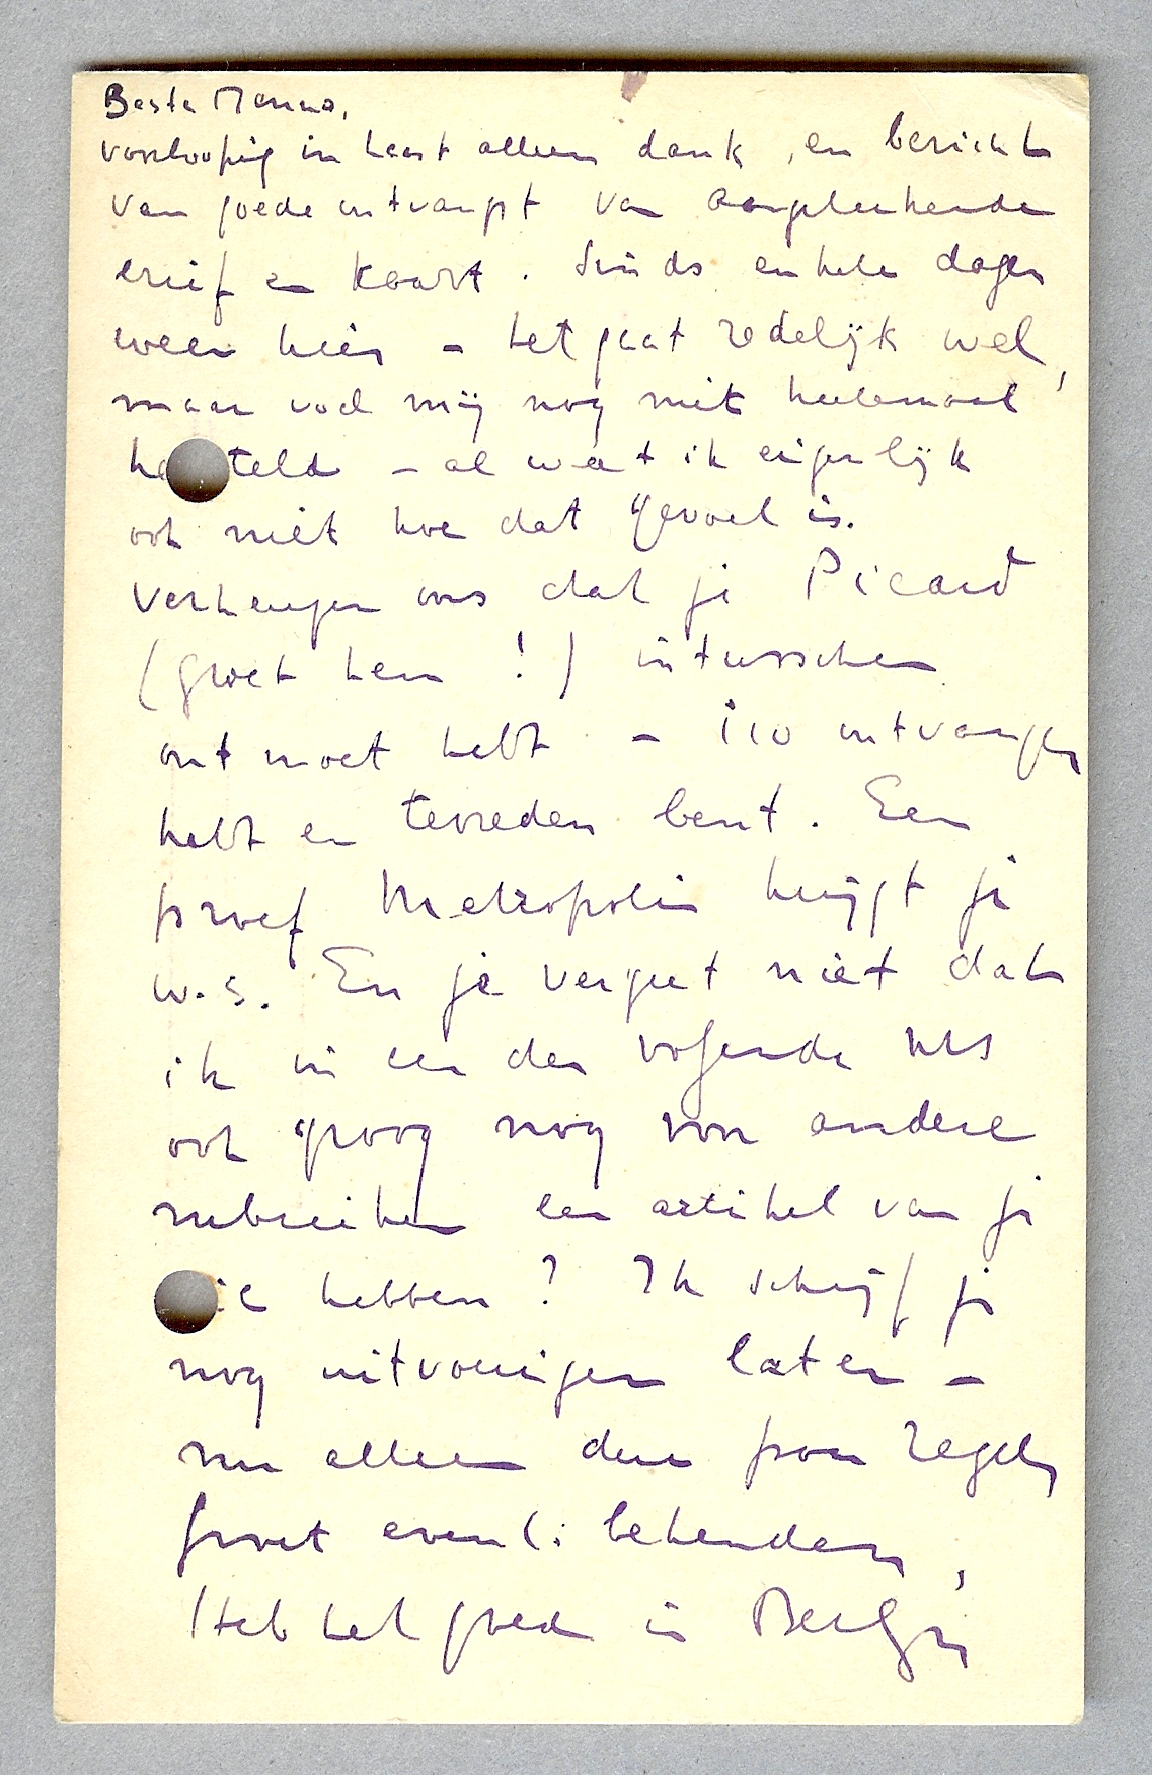 Beste Menno,
voorloopig in haast alleen dank, en bericht
van goede ontvangst van aangeteekende
brief en kaart. Sinds enkele dagen
weer hier – het gaat redelijk wel,
maar voel mij nog niet heelemaal
he teld – al weet ik eigenlijk
ook niet hoe dat gevoel is.
Verheugen ons dat je Picard
(groet hem!) intusschen
ontmoet hebt – i10 ontvangen
hebt en tevreden bent. Een
proef Metropolis krijgt je
w.s. En je vergeet niet dat
ik in een der volgende nrs
ook graag nog voor andere
rubrieken een artikel van je
wil hebben? Ik schrijf je
nog uitvoeriger later –
nu alleen deze paar regels,
groet event: bekenden,
Heb het goed in